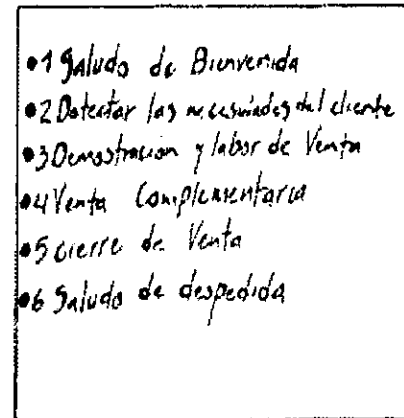 •1 Saludo de Bienvenida
•2 Detectar las necesidades del cliente
•3 Demostracion y labor de Venta
•4 Venta Complementaria
•5 cierre de Venta
•6 Saludo de despedida